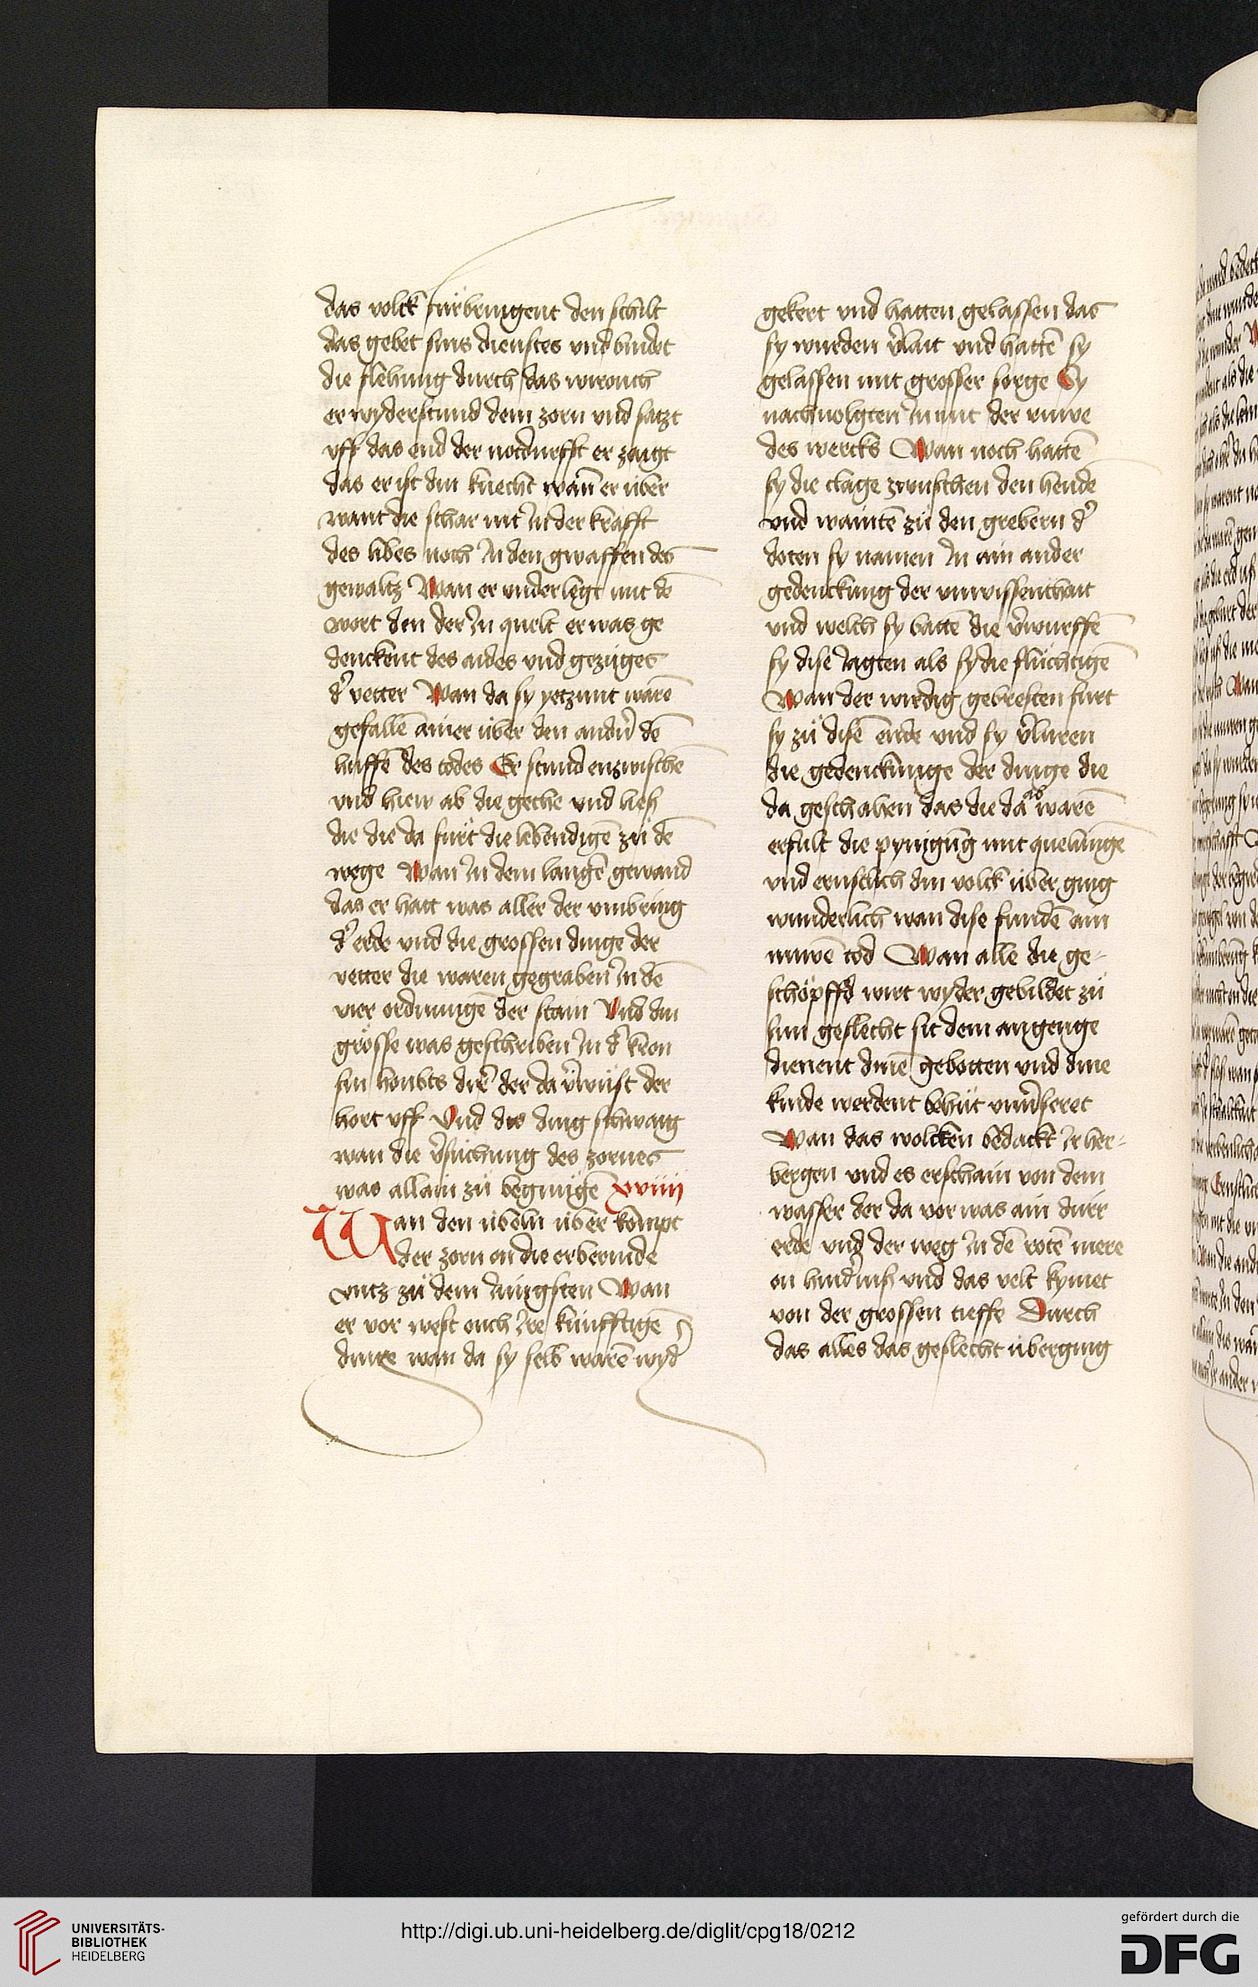 das volck fürbringent den schilt
das gebet sins dienstes und bindet
die flehung durch das wirouch
er wyderstund dem zorn vnd satzt
vff das end der notdurfft er zaigt
das er ist din knecht wañ er über
want die schar nit In der krafft
des libes noch In den gwaffen des
gewaltz Wan er vnderlegt mit dē
wort den der In quelt er was ge
denckent des aides vnd gezüges
d' vetter Wan da sy yetzunt warē
gefallē ainer über den andn̄ dē
huffē des todes Er stund enzwischē
vnd hiew ab die geche vnd ließ
die die da fürt die lebendigē zü dē
wege Wan In dem langē gewand
das er hatt was aller der vmbring
d' erde vnd die grossen dinge der
vetter die waren gegraben In dē
vier ordnungē der stain Vnd din
grösse was geschriben In d' kron
sin houbts dire der da v'wüst der
hort vff Vnd dis ding schwaig
wan die v'süchung des zornes
was allain zü beginigē xviiij
Wan den übeln über kompt
der zorn on die erbermde
vntz zü dem Iungsten Wan
er vor west ouch Ire künfftige
dinge wan da sy selb warē wyd'
gekert vnd hatten gelassen das
sy wurden v'lait vnd hattē sy
gelassen mit grosser sorge Sy
nachuolgten In mit der ruwe
des wercks Wan noch hattē
sy die clage zwuschen den hende
vnd waintē zü den grebern d'
doten sy namen In ain ander
gedenckung der vnwissenthait
vnd welch sy battē die v'wurffē
sy dise Iagten als sy die flüchtigē
Wan der wirdig gebresten fürt
sy zü disē ende vnd sy v'luren
die gedenckunge der dinge die
da geschahen das die da ab warē
erfült die pynigūg mit quelunge
vnd ernstlich din volck über ging
wunderlich wan dise fundē ain
nuwē tod Wan alle die ge-
schöpffd wirt wyder gebildet zü
sim geslecht sit dem angenge
dienent dinē gebotten vnd dine
kinde werdent behüt vnu'seret
Wan das wolcken bedackt Ir her-
bergen vnd es erschain von dem
wasser der da vor was ain dürr
erde vnd der weg In dē rotē mere
on hind'nuß vnd das velt kymet
von der grossen tieffe Durch
das alles das geslecht überging
UNIVERSITÄTS-
BIBLIOTHEK
HEIDELBERG
http://digi.ub.uni-heidelberg.de/diglit/cpg18/0212
gefördert durch die
DFG